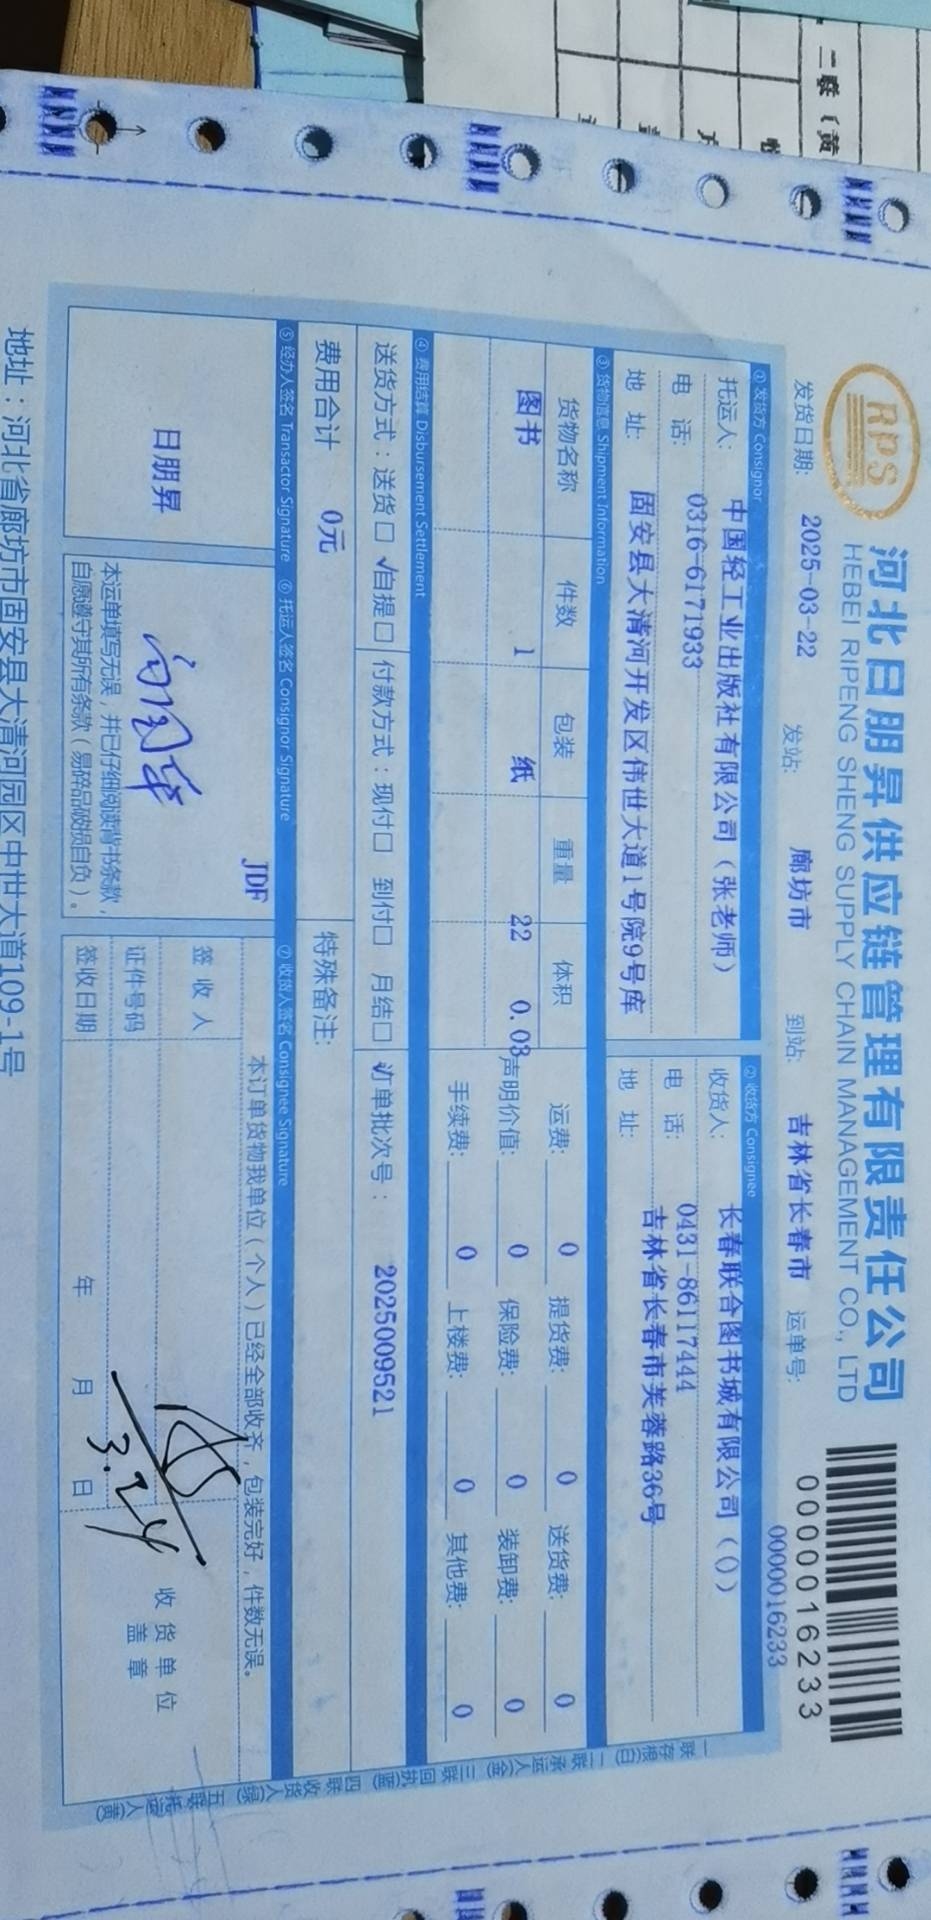 RPS
河北日朋昇供应链管理有限责任公司
HEBEI RIPENG SHENG SUPPLY CHAIN MANAGEMENT CO., LTD
0000016233
0000016233
发货日期: 2025-03-22 发站: 廊坊市 到站: 吉林省长春市 运单号:
① 发货方 Consignor ② 收货方 Consignee
托运人: 中国轻工业出版社有限公司(张老师) 收货人: 长春联合图书城有限公司(())
电 话: 0316-6171933 电 话: 0431-86117444
地 址: 固安县大清河开发区伟世大道1号院9号库 地 址: 吉林省长春市芙蓉路36号
③ 货物信息 Shipment Information
货物名称 件数 包装 重量 体积 运费: 0 提货费: 0 送货费: 0
图书 1 纸 22 0.03 声明价值: 0 保险费: 0 装卸费: 0
手续费: 0 上楼费: 0 其他费: 0
④ 费用结算 Disbursement Settlement
送货方式:送货□ √自提□ 付款方式:现付□ 到付□ 月结□ √ 订单批次号: 2025009521
费用合计 0元 特殊备注:
⑤ 经办人签名 Transactor Signature ⑥ 托运人签名 Consignor Signature ⑦ 收货人签名 Consignee Signature
JDF
本订单货物我单位(个人)已经全部收齐,包装完好,件数无误。
日朋昇
签 收 人
证件号码
签收日期 年 月 日
3.24
收货单位
盖章
本运单填写无误,并已仔细阅读背书条款,
自愿遵守其所有条款(易碎品破损自负)。
一联存根(白) 二联承运人(金) 三联回执(蓝) 四联收货人(绿) 五联托运人(黄)
地址:河北省廊坊市固安县大清河园区中世大道109-1号
二联(黄